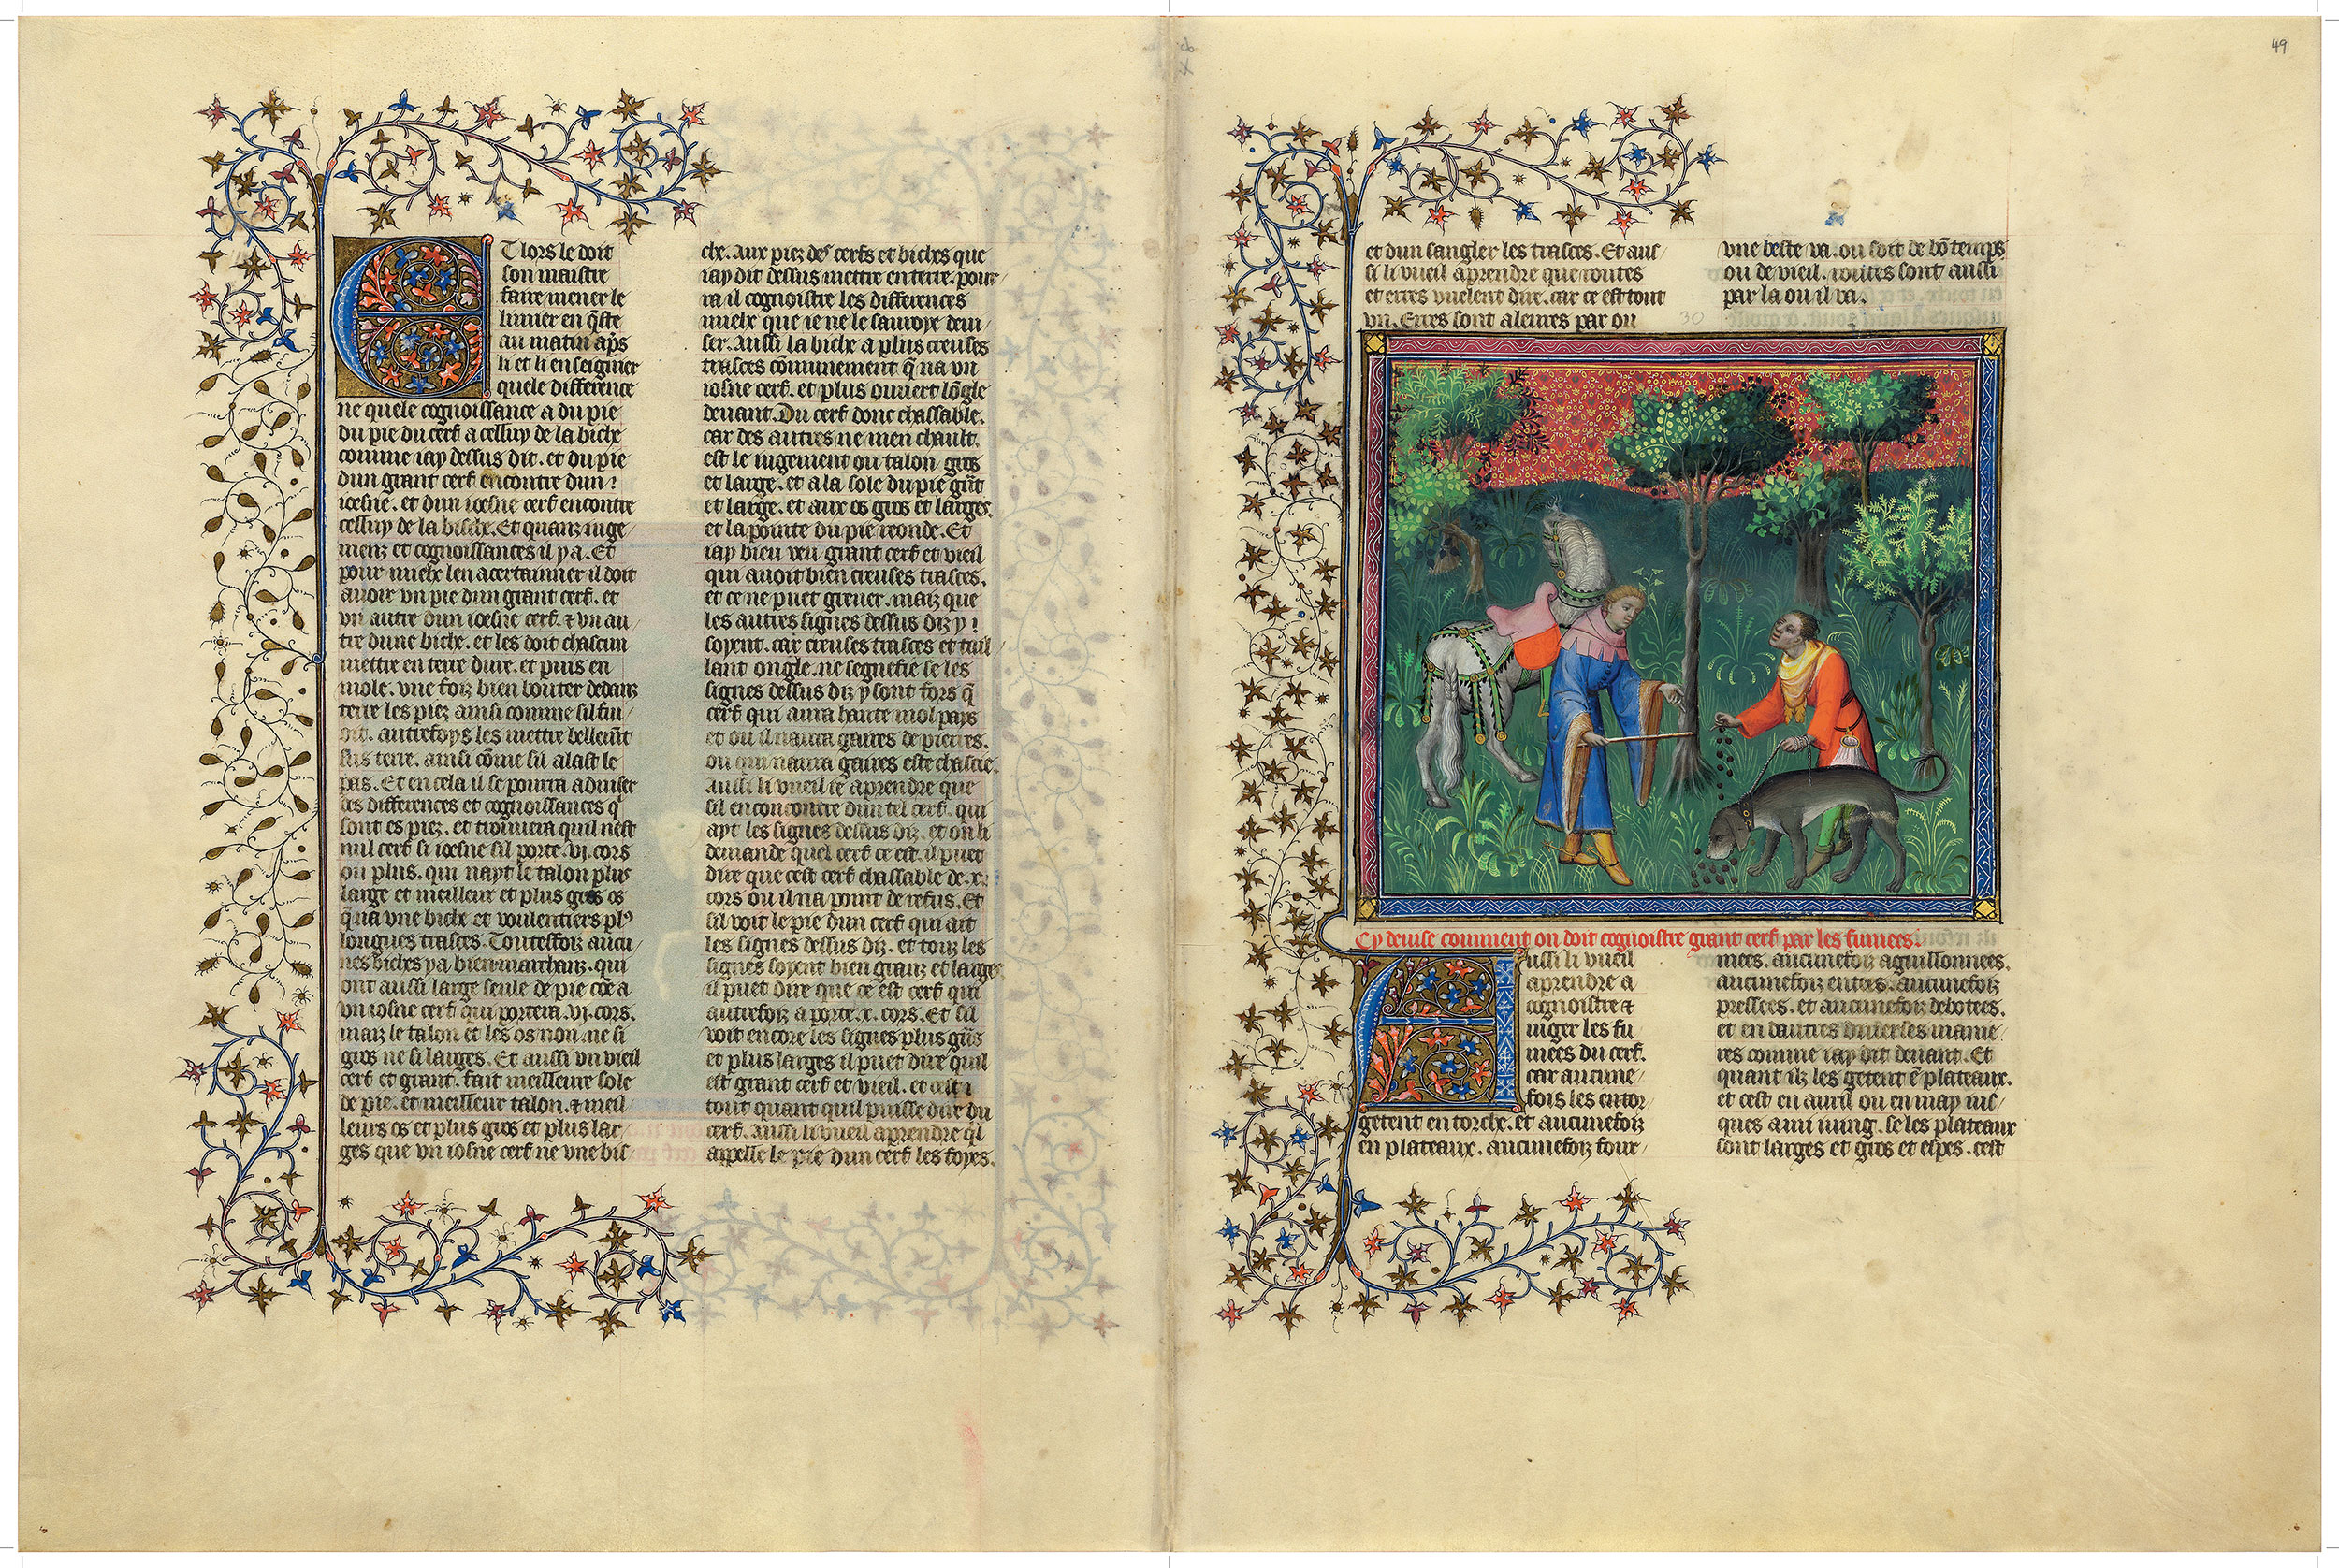 Et lors le doit
son maistre
faire mener le
limier en q̃ste
au matin ap̃s
li et li enseigner
quele difference
ne quele cognoissance a du pie
du pie du cerf a celluy de la biche
comme iay dessus dit. et du pie
dun grant cerf encontre dun
ioesne. et dun ioesne cerf encontre
celluy de la bische. Et quanz iuge/
menz et cognoissances il y a. Et
pour mielx len acertainner il doit
auoir vn pie dun grant cerf. et
vn autre dun ioesne cerf. ⁊ vn au/
tre dune biche. et les doit chascun
mettre en terre dure. et puis en
mole. vne foiz bien bouter dedanz
terre les piez ainsi comme sil fui/
oit. autrefoys les mettre bellem̃t
sus terre. ainsi cõme sil alast le
pas. Et en cela il se pourra aduiser
les differences et cognoissances q̃
sont es piez. et trouuera quil nest
nul cerf si ioesne sil porte .vj. cors
ou plus. qui nayt le talon plus
large et meilleur et plus gros os
q̃ na vne biche et voulentiers pl9
longues trasces. Toutesfoiz aucu/
nes biches y a bien marchanz. qui
ont aussi large seule de pie cõe a
vn iosne cerf qui portera .vj. cors.
maiz le talon et les os non. ne si
gros ne si larges. Et aussi vn vieil
cerf et grant. fait meilleure sole
de pie. et meilleur talon. ⁊ meil/
leurs os et plus gros et plus lar
ges que vn iosne cerf ne vne bis
che. Aux piez des cerfs et biches que
iay dit dessus mettre en terre. pour/
ra il cognoistre les differences
mielx que ie ne le sauroye deui/
ser. Aussi la biche a plus creuses
trasces cõmunement q̃ na vn
iosne cerf. et plus ouuert lõgle
deuant. Du cerf donc chassable.
car des autres ne men chault.
est le iugement ou talon gros
et large. et a la sole du pie grãt
et large. et aux os gros et larges.
et la pointe du pie reonde. Et
iay bien veu grant cerf et vieil
qui auoit bien creuses trasces.
et ce ne puet greuer. maiz que
les autres signes dessus diz y
soyent. car creuses trasces et tail/
lant ongle. ne segnefie se les
signes dessus diz y sont fors q̃
cerf qui aura hante mol pays
et ou il naura gaires de pierres.
ou qui naura gaires este chascie.
Aussi li vueil ie aprendre que
sil en concontre dun tel cerf. qui
ayt les signes dessus diz. et on li
demande quel cerf ce est. il puet
dire que cest cerf chassable de .x.
cors ou il na point de refus. Et
sil voit le pie dun cerf qui ait
les signes dessus diz. et touz les
signes soyent bien granz et larges
il puet dire que ce est cerf qui
autrefoiz a porte .x. cors. Et sil
voit encore les signes plus grãs
et plus larges il puet dire quil
est grant cerf et vieil. et cest
tout quant quil puisse dire du
cerf. Aussi li vueil aprendre q̃l
appelle le pie dun cerf les foyes.
49
et dun sangler les trasces. Et aus/
si li vueil aprendre que routes
et erres vuelent dire. car ce est tout
vn. Erres sont aleures par ou
30
vne beste va. ou soit de bõ temps
ou de vieil. routes sont aussi
par la ou il va.
Cy deuise comment on doit cognoistre grant cerf par les fumees.
Aussi li vueil
aprendre a
cognoistre ⁊
iuger les fu
mees du cerf.
car aucune/
fois les en tor/
getent en torche. et aucunefoiz
en plateaux. aucunefoiz four/
mees. aucunefoiz aguillonnees.
aucunefoiz entees. aucunefoiz
pressees. et aucunefoiz debotees.
et en dautres diuerses manie/
res comme iay dit deuant. Et
quant ilz les getent ẽ plateaux.
et cest en auril ou en may ius/
ques a mi iuing. se les plateaux
sont larges et gros et espes. cest